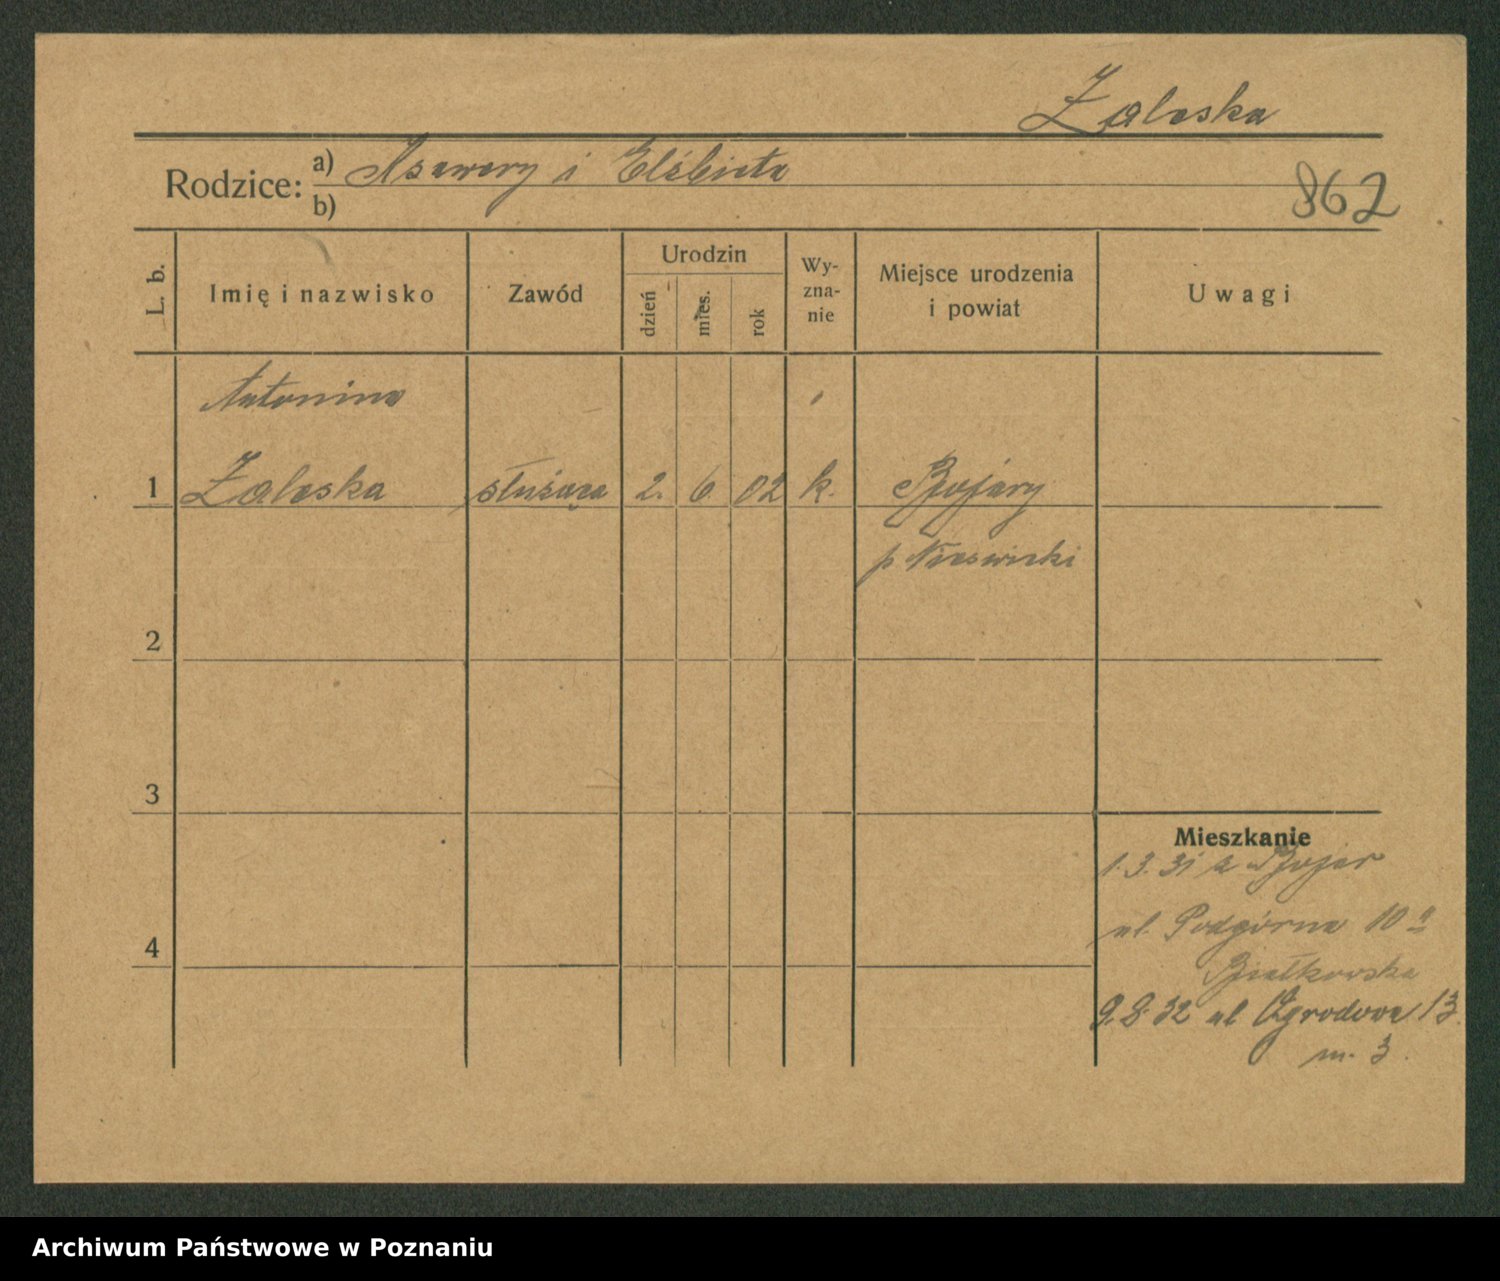 Zaleska
Rodzice: a) Ksawery i Elżbieta
b)
862
L. b.
Imię i nazwisko
Zawód
Urodzin
dzień
mies.
rok
Wy-
zna-
nie
Miejsce urodzenia
i powiat
Uwagi
Antonina
1 Zaleska służąca 2. 6 02 k. Bojary
p Nieświcki
2
3
Mieszkanie
1.3.31 z Bojar
ul. Podgórna 10 a
4
Białkowska
9.8.32 ul Ogrodowa 13
m. 3.
Archiwum Państwowe w Poznaniu